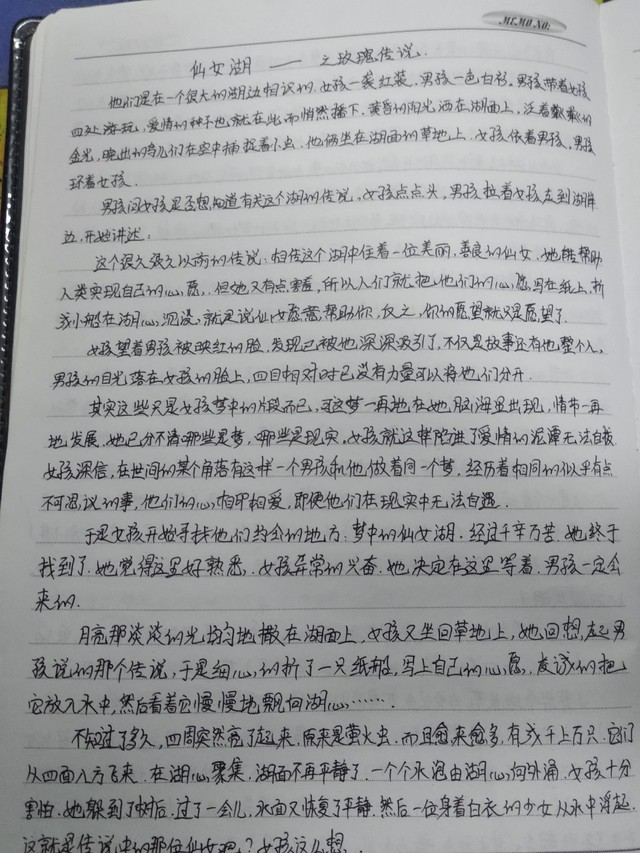 MEMO No:
仙女湖 —— 之玫瑰传说.
他们是在一个很大的湖边相识的.女孩一袭红装.男孩一色白衫.男孩带着女孩
四处游玩,爱情的种子也就在此而悄然播下.黄昏的阳光洒在湖面上,泛着粼粼的
金光,晚出的鸟儿们在空中捕捉着小虫.他俩坐在湖面的草地上.女孩依着男孩,男孩
环着女孩.
男孩问女孩是否想知道有关这个湖的传说,女孩点点头,男孩拉着女孩走到湖岸
边,开始讲述:
这个很久很久以前的传说:相传这个湖中住着一位美丽,善良的仙女.她能帮助
人类实现自己的心愿,但她又有点害羞,所以人们就把他们的心愿写在纸上,折
成小船在湖心沉没,就是说仙女愿意帮助你,反之,你的愿望就只是愿望了.
女孩望着男孩被映红的脸,发现已被他深深吸引了,不仅是故事还有他整个人,
男孩的目光落在女孩的脸上,四目相对时已没有力量可以将他们分开.
其实这些只是女孩梦中的片段而已,可这梦一再地在她脑海里出现,情节一再
地发展.她已分不清哪些是梦,哪些是现实,女孩就这样陷进了爱情的泥潭无法自拔
女孩深信,在世间的某个角落有这样一个男孩和他做着同一个梦,经历着相同的似乎有点
不可思议的事,他们的心相印相爱,即使他们在现实中无法自遇.
于是女孩开始寻找他们约会的地方:梦中的仙女湖.经过千辛万苦.她终于
找到了.她觉得这里好熟悉.女孩异常的兴奋.她决定在这里等着.男孩一定会
来的.
月亮那淡淡的光均匀地撒在湖面上,女孩又坐回草地上,她回想起男
孩说的那个传说,于是细心的折了一只纸船,写上自己的心愿,虔诚的把
它放入水中,然后看着它慢慢地飘向湖心……
不知过了多久,四周突然亮了起来.原来是萤火虫.而且愈来愈多,有成千上万只.它们
从四面八方飞来.在湖心聚集.湖面不再平静了.一个个水泡由湖心向外涌.女孩十分
害怕.她躲到了树后.过了一会儿,水面又恢复了平静.然后一位身着白衣的少女从水中浮起.
这就是传说中的那位仙女吧?女孩这么想.